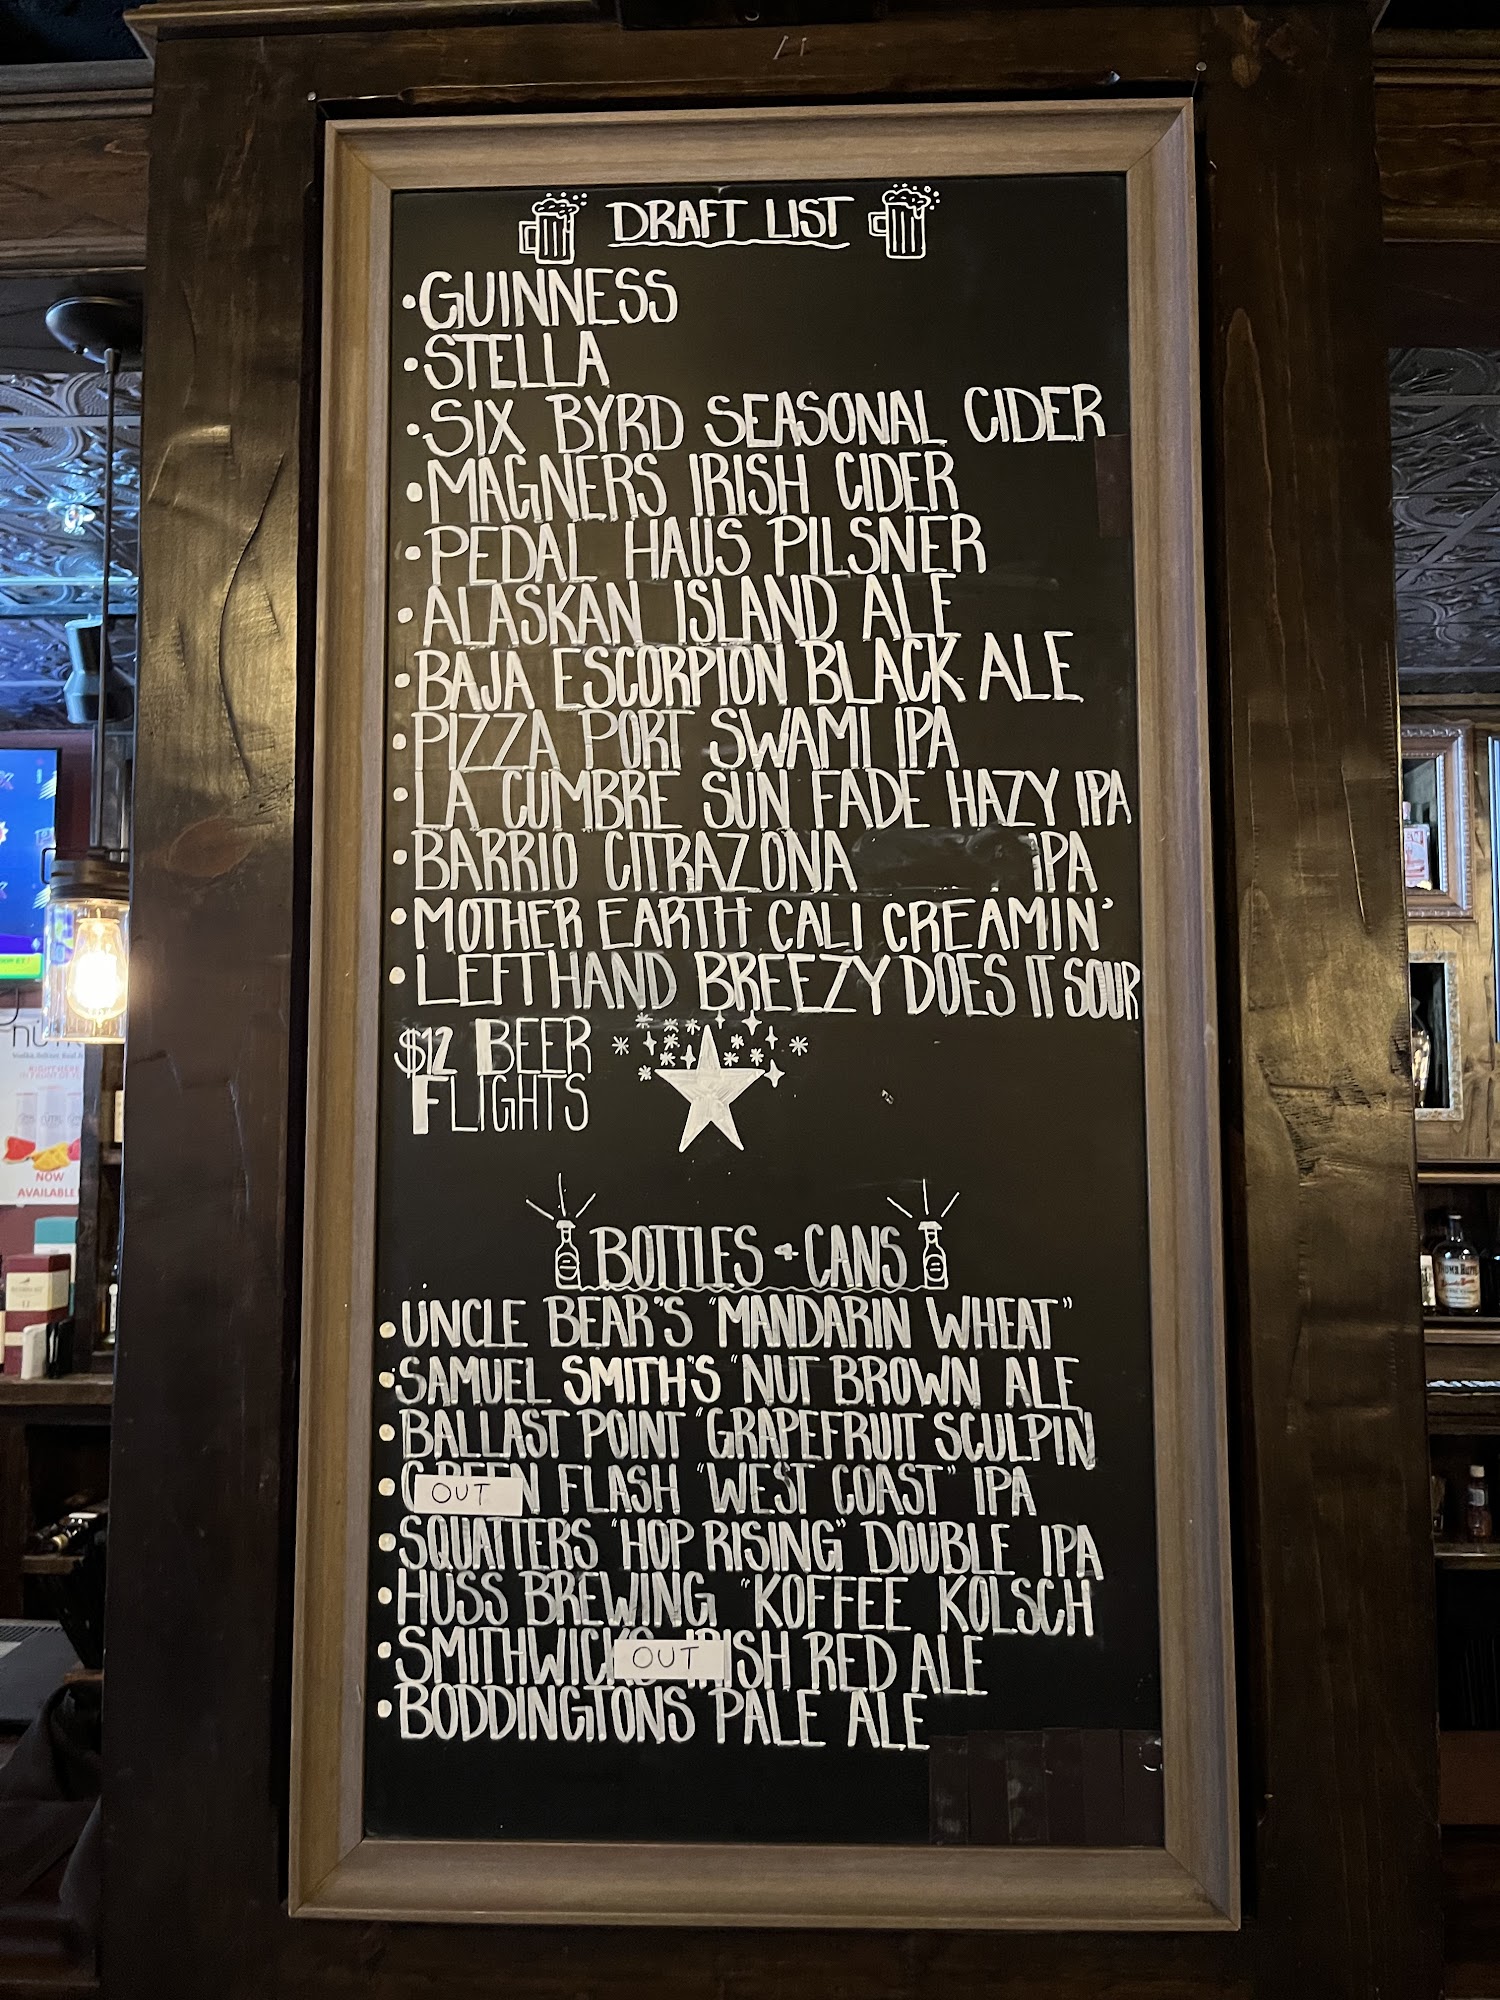 DRAFT LIST
•GUINNESS
•STELLA
•SIX BYRD SEASONAL CIDER
•MAGNERS IRISH CIDER
•PEDAL HAUS PILSNER
•ALASKAN ISLAND ALE
•BAJA ESCORPION BLACK ALE
•PIZZA PORT SWAMI IPA
•LA CUMBRE SUN FADE HAZY IPA
•BARRIO CITRAZONA IPA
•MOTHER EARTH CALI CREAMIN'
•LEFTHAND BREEZY DOES IT SOUR
$12 BEER
FLIGHTS
BOTTLES & CANS
•UNCLE BEAR'S "MANDARIN WHEAT"
•SAMUEL SMITH'S "NUT BROWN ALE
•BALLAST POINT "GRAPEFRUIT SCULPIN
•GREEN FLASH "WEST COAST" IPA
OUT
•SQUATTERS "HOP RISING" DOUBLE IPA
•HUSS BREWING "KOFFEE KOLSCH
•SMITHWICKS IRISH RED ALE
OUT
•BODDINGTONS PALE ALE
NOW
AVAILABLE